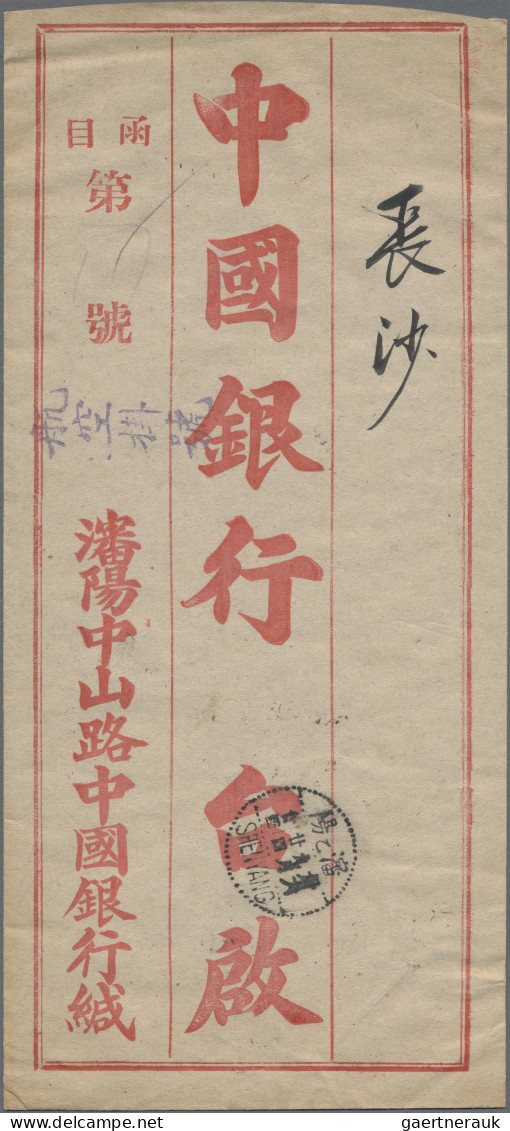 長沙
中國銀行 台啟
函目
第
號
航空掛號
瀋陽中山路中國銀行緘
瀋陽
SHENYANG
gaertnerauk